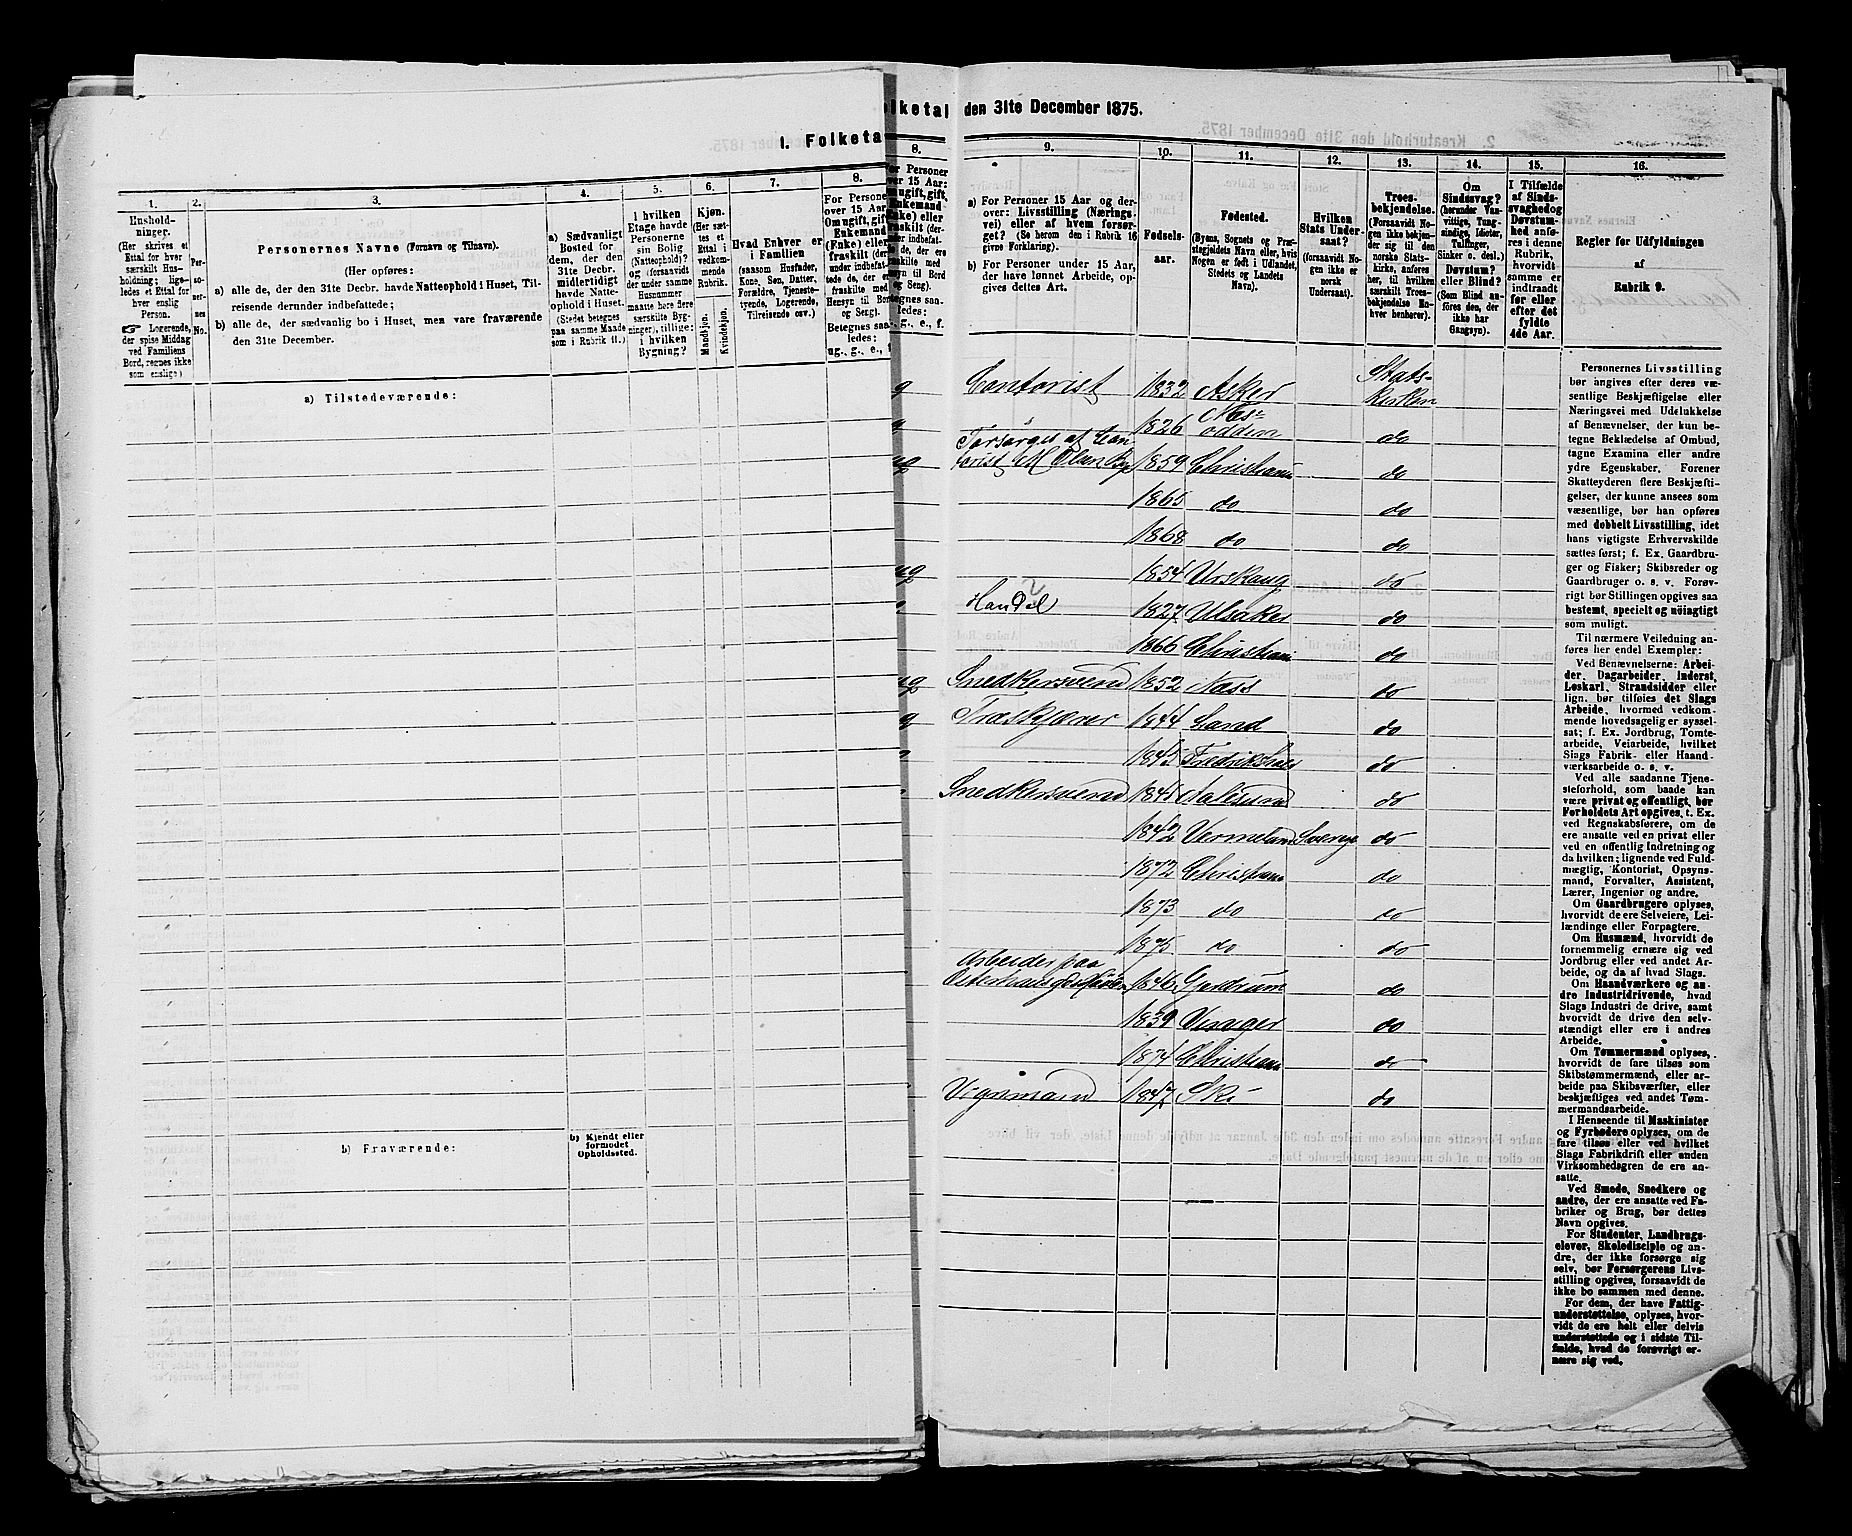 olketal den 31te December 1875.
1. Folketa
1.
2.
3.
4.
5.
6.
7.
8.
Hushold-
ninger.
(Her skrives et
Ettal for hver
særskilt Hus-
holdning; lige-
ledes et Ettal for
hver enslig
Person.
☞ Logerende,
der spise Middag
ved Familiens
Bord, regnes ikke
som enslige)
Per-
so-
ner-
nes
No.
Personernes Navne (Fornavn og Tilnavn).
(Her opføres:
a) alle de, der den 31te Decbr. havde Natteophold i Huset, Til-
reisende derunder indbefattede;
b) alle de, der sædvanlig bo i Huset, men vare fraværende
den 31te December.
a) Sædvanligt
Bosted for
dem, der den
31te Decbr.
midlertidigt
havde Natte-
ophold i Huset.
(Stedet betegnes
paa samme Maade
som i Rubrik 11.)
I hvilken
Etage havde
Personerne
sin Bolig
(Natteophold)?
og (forsaavidt
der under samme
Husnummer
maatte høre flere
særskilte Byg-
ninger), tillige:
i hvilken
Bygning?
Kjøn.
(Her sæt-
tes et
Ettal i
vedkom-
mende
Rubrik.
Mandkjøn.
Kvindekjøn.
Hvad Enhver er
i Familien
(saasom Husfader,
Kone, Søn, Datter,
Forældre, Tjeneste-
tyende, Logerende,
Tilreisende osv.)
For Personer
over 15 Aar:
Om ugift, gift,
Enkemand
(Enke) eller
fraskilt (der-
under indbefat-
tede de, der ere
fraskilte med
Hensyn til Bord
og Seng).
Betegnes saa-
ledes:
ug., g., e., f.
a) Tilstedeværende:
b) Fraværende:
b) Kjendt eller
formodet
Opholdssted.
8.
9.
10.
11.
12.
13.
14.
15.
16.
a) For Personer 15 Aar og der-
over: Livsstilling (Nærings-
vei) eller af hvem forsør-
get? (Se herom den i Rubrik 16
givne Forklaring).
b) For Personer under 15 Aar,
der have lønnet Arbeide, op-
gives dettes Art.
Fødsels-
aar.
Fødested.
(Byens, Sognets og Præ-
stegjeldets Navn eller, hvis
Nogen er født i Udlandet,
Stedets og Landets
Navn).
Hvilken
Stats Under-
saat?
(forsaavidt No-
gen ikke er
norsk
Undersaat).
Troes-
bekjendelse.
(Forsaavidt No-
gen ikke bekjen-
der sig til den
norske Stats-
kirke, anføres
her, til hvilken
særskilt Troes-
bekjendelse No-
gen henhører).
Om
Sindssvag?
(herunder Van-
vittige, Tung-
sindige, Idioter,
Tullinger,
Sinker o. desl.)
Døvstum?
eller Blind?
(Som Blind an-
føres den, der
ikke har
Gangsyn).
I Tilfælde
af Sinds-
svaghed og
Døvstum-
hed anfø-
res i denne
Rubrik,
hvorvidt
samme er
indtraadt
før eller
efter det
fyldte
4de Aar.
Regler for Udfyldningen
af
Rubrik 9.
g Contorist 1832 Asker Stats-
kirken
1826 Næs-
odden do
Forsørges af Con-
ug torist M Olsen By 1859 Christiania do
1865 do do
1868 do do
ug 1854 Urskaug do
Handel 1827 Ulsaker do
1866 Christiani do
ug Snedkersvend 1852 Næss do
g Træskjærer 1844 Sand do
1845 Fredrikshald do
Snedkersvend 1841 Aalesund do
1842 Vermeland Sverige do
1872 Christiania do
1873 do do
1875 do do
Arbeider paa
1846 Gjerdrum do
1839 Vinger do
1874 Christiania do
Vognmand 1847 Ski do
Personernes Livsstilling
bør angives efter deres væ-
sentlige Beskjæftigelse eller
Næringsvei med Udelukkelse
af Benævnelser, der kun be-
tegne Beklædelse af Ombud,
tagne Examina eller andre
ydre Egenskaber. Forener
Skatteyderen flere Beskjæfti-
gelser, der kunne ansees som
væsentlige, bør han opføres
med dobbelt Livsstilling, idet
hans vigtigste Erhvervskilde
sættes først; f. Ex. Gaardbru-
ger og Fisker; Skibsreder og
Gaardbruger o. s. v. Forøv-
rigt bør Stillingen opgives saa
bestemt, specielt og nøiagtigt
som muligt.
Til nærmere Veiledning an-
føres her endel Exempler:
Ved Benævnelserne: Arbei-
der, Dagarbeider, Inderst,
Løskarl, Strandsidder eller
lign. bør tilføies det Slags
Arbeide, hvormed vedkom-
mende hovedsagelig er syssel-
sat; f. Ex. Jordbrug, Tomte-
arbeide, Veiarbeide, hvilket
Slags Fabrik- eller Haand-
værksarbeide o. s. v.
Ved alle saadanne Tjene-
steforhold, som baade kan
være privat og offentligt, bør
Forholdets Art opgives, t. Ex.
ved Regnskabsførere, om de
ere ansatte ved en privat eller
ved en offentlig Indretning og
da hvilken; lignende ved Fuld-
mægtig, Kontorist, Opsyns-
mand, Forvalter, Assistent,
Lærer, Ingeniør og andre.
Om Gaardbrugere oplyses,
hvorvidt de ere Selveiere, Lei-
lændinge eller Forpagtere.
Om Husmænd, hvorvidt de
fornemmelig ernære sig ved
Jordbrug eller ved andet Ar-
beide, og da af hvad Slags.
Om Haandværkere og an-
dre Industridrivende, hvad
Slags Industri de drive, samt
hvorvidt de drive den selv-
stændigt eller ere i andres
Arbeide.
Om Tømmermænd oplyses,
hvorvidt de fare tilsøs som
Skibstømmermænd, eller ar-
beide paa Skibsværfter, eller
beskjæftiges ved andet Tøm-
mermandsarbeide.
I Henseende til Maskinister
og Fyrbødere oplyses, om de
fare tilsøs eller ved hvilket
Slags Fabrikdrift eller anden
Virksomhedsgren de ere an-
satte.
Ved Smede, Snedkere og
andre, der ere ansatte ved Fa-
briker og Brug, bør dettes
Navn opgives.
For Studenter, Landbrugs-
elever, Skoledisciple og an-
dre, der ikke forsørge sig
selv, bør Forsørgerens Livs-
stilling opgives, forsaavidt de
ikke bo sammen med denne.
For dem, der have Fattig-
understøttelse, oplyses, hvor-
vidt de ere helt eller delvis
understøttede og i sidste Til-
fælde, hvad de forøvrigt er-
nære sig ved.